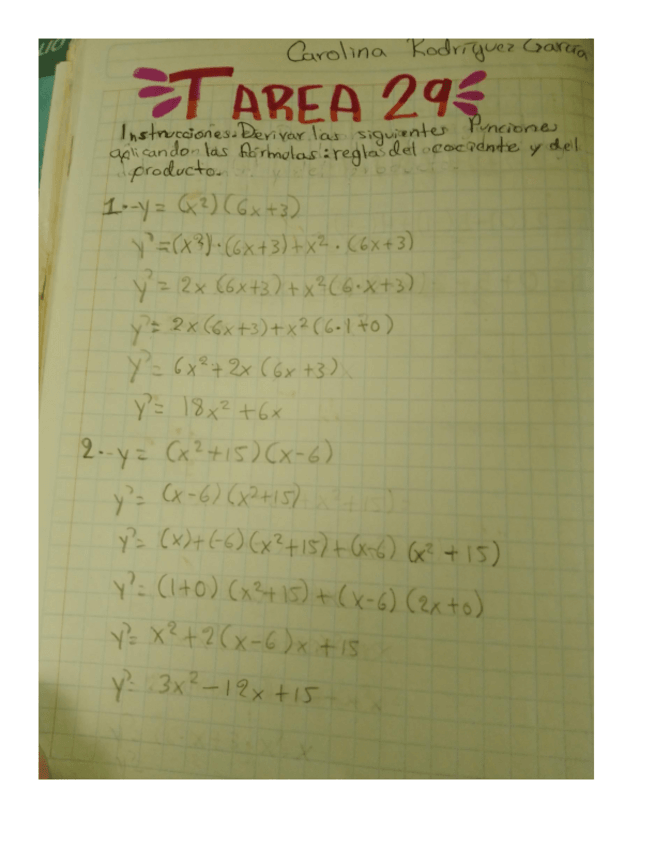 Carolina Rodríguez García
TAREA 29
Instrucciones. Derivar las siguientes funciones
aplicando las fórmulas: regla del cociente y del
producto.
1.-y = (x²)(6x+3)
y'=(x²)·(6x+3)+x²·(6x+3)
y'= 2x (6x+3)+x²(6·x+3)
y'= 2x(6x+3)+x²(6·1+0)
y'= 6x²+2x(6x+3)
y'= 18x²+6x
2.-y= (x²+15)(x-6)
y'= (x-6)(x²+15)
y'= (x)+(-6)(x²+15)+(x-6)(x²+15)
y'= (1+0)(x²+15)+(x-6)(2x+0)
y'= x²+2(x-6)x+15
y'= 3x²-12x+15